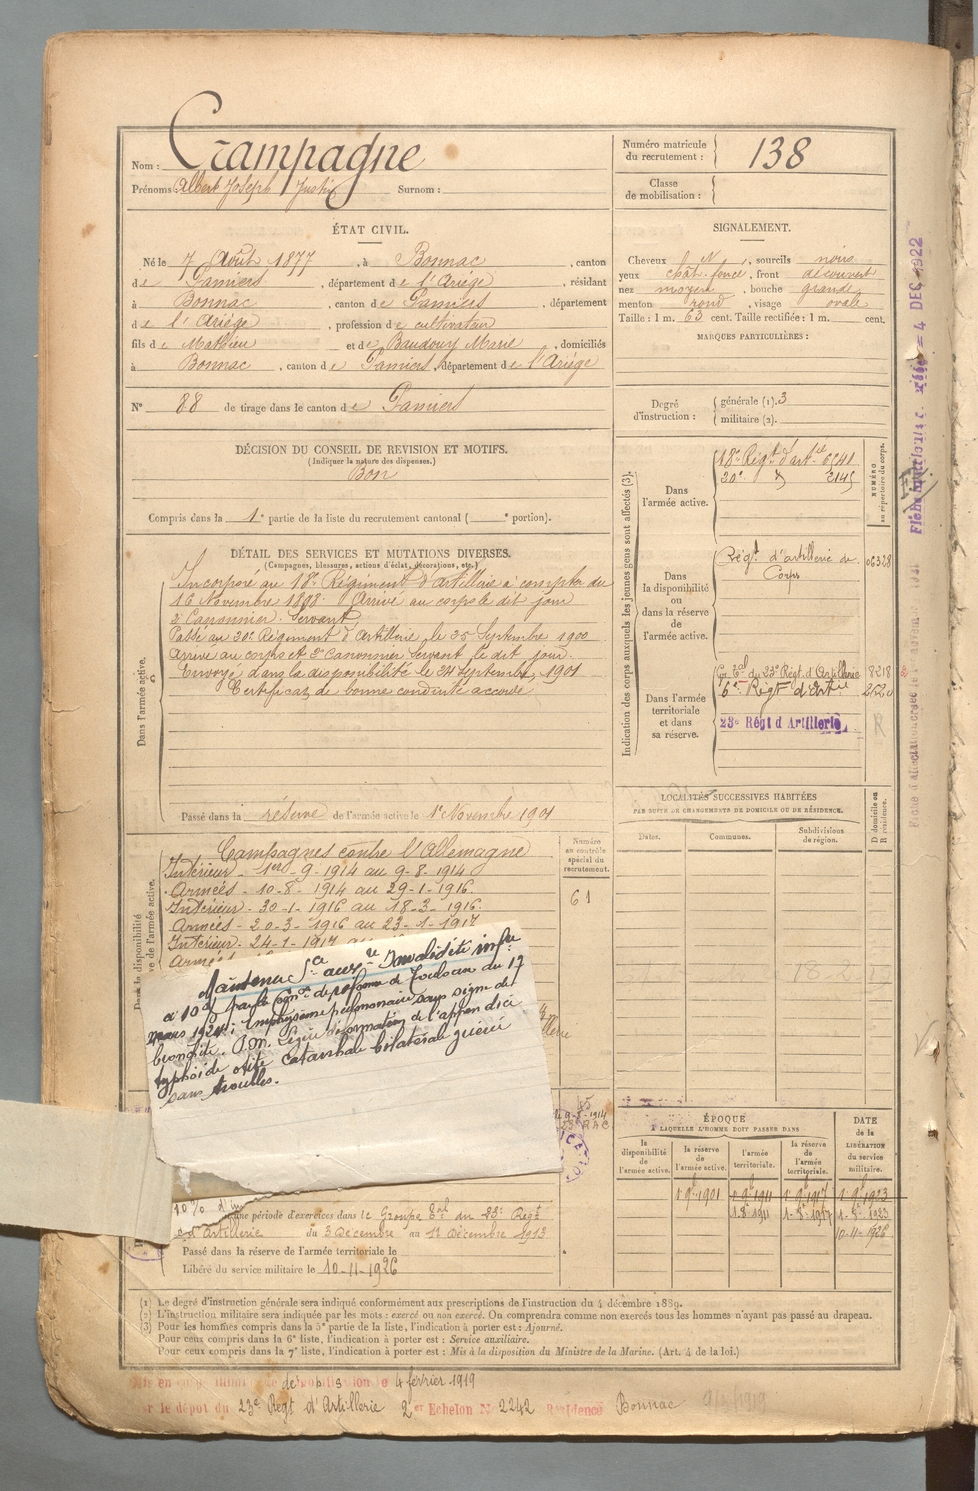 Nom : Crampagne
Prénoms : Albert Joseph Justin Surnom :
Numéro matricule du recrutement : 138
Classe de mobilisation :
ÉTAT CIVIL.
Né le 7 Août 1877, à Bonnac, canton
de Pamiers, département de l'Ariège, résidant
à Bonnac, canton de Pamiers, département
de l'Ariège, profession de cultivateur
fils de Mathieu et de Baudouy Marie, domiciliés
à Bonnac, canton de Pamiers, département de l'Ariège
N° 88 de tirage dans le canton de Pamiers
SIGNALEMENT.
Cheveux N, sourcils noirs
yeux chât. foncé, front découvert
nez moyen, bouche grande
menton rond, visage ovale
Taille : 1 m. 63 cent. Taille rectifiée : 1 m. cent.
MARQUES PARTICULIÈRES :
Degré d'instruction : générale (1). 3
militaire (2).
DÉCISION DU CONSEIL DE REVISION ET MOTIFS.
(Indiquer la nature des dispenses.)
Bon
Compris dans la 1e partie de la liste du recrutement cantonal ( e portion).
DÉTAIL DES SERVICES ET MUTATIONS DIVERSES.
(Campagnes, blessures, actions d'éclat, décorations, etc.)
Dans l'armée active.
Incorporé au 18e Régiment d'artillerie à compter du
16 Novembre 1898. Arrivé au corps le dit jour
2e Canonnier Servant
Passé au 20e Régiment d'Artillerie le 25 Septembre 1900
Arrivé au corps et 2e Canonnier Servant le dit jour.
Envoyé dans la disponibilité le 24 Septembre 1901
Certificat de bonne conduite accordé
Passé dans la réserve de l'armée active le 1er Novembre 1901
Indication des corps auxquels les jeunes gens sont affectés (3).
NUMÉRO au répertoire du corps.
Dans l'armée active.
18e Régt d'artie 6541
20e d° 2145
Dans la disponibilité ou dans la réserve de l'armée active.
Régt d'artillerie de 06328
Corps
Dans l'armée territoriale et dans sa réserve.
Gr. Tal du 23e Régt. d'Artillerie 8218
6e Régt d'Artie
23e Régt d'Artillerie
LOCALITÉS SUCCESSIVES HABITÉES
PAR SUITE DE CHANGEMENTS DE DOMICILE OU DE RÉSIDENCE.
Dates. Communes. Subdivisions de région. D domicile ou R résidence.
Numéro au contrôle spécial du recrutement.
61
Campagnes contre l'Allemagne
Intérieur - 1914 au 9-8-1914
Armées - 10-8-1914 au 29-1-1916.
Intérieur - 30-1-1916 au 18-3-1916.
Armées - 20-3-1916 au 23-1-1917
Intérieur - 24-1-1917 au
Maintenu Sce auxre Invalidité infre
à 10% par la Comon de réforme de Toulouse du 17
mars 1924 : Emphysème pulmonaire sans signe de
bronchite. P.M. Légère déformation de l'appendice
typhoïde otite catarrhale bilatérale guérie
sans troubles.
période d'exercices dans le Groupe Tal du 23e Régt
d'Artillerie du 3 Décembre au 12 Décembre 1913
Passé dans la réserve de l'armée territoriale le
Libéré du service militaire le 10-11-1926
ÉPOQUE
A LAQUELLE L'HOMME DOIT PASSER DANS
la disponibilité de l'armée active. la réserve de l'armée active. l'armée territoriale. la réserve de l'armée territoriale.
DATE de la LIBÉRATION du service militaire.
1 9e 1901 1 9e 1911 1 9e 1917 1 9e 1923
10-11-1926
(1) Le degré d'instruction générale sera indiqué conformément aux prescriptions de l'instruction du 4 décembre 1889.
(2) L'instruction militaire sera indiquée par les mots : exercé ou non exercé. On comprendra comme non exercés tous les hommes n'ayant pas passé au drapeau.
(3) Pour les hommes compris dans la 5e partie de la liste, l'indication à porter est : Ajourné.
Pour ceux compris dans la 6e liste, l'indication à porter est : Service auxiliaire.
Pour ceux compris dans la 7e liste, l'indication à porter est : Mis à la disposition du Ministre de la Marine. (Art. 4 de la loi.)
Mis en congé illimité de démobilisation le 4 février 1919
le dépôt du 23e Régt d'Artillerie 2e Echelon N° 2242 Résidence Bonnac
4 DEC 1922